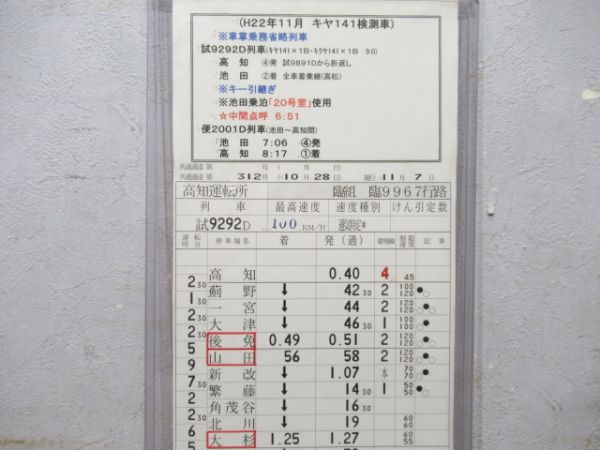 (H22年11月 キヤ141検測車)
※車掌乗務省略列車
試9292D列車(キヤ141×1B・キクヤ141×1B 90)
高 知 ④発 試9891Dから折返し
池 田 ②着 全車着乗継(高松)
※キー引継ぎ
※池田乗泊「20号室」使用
☆中間点呼 6:51
便2001D列車(池田～高知間)
池 田 7:06 ④発
高 知 8:17 ①着
312号 10月28日 施行 11月7日
高知運転所 臨組 臨9967行路
列車 最高速度 速度種別 けん引定数
試9292D 100 KM/H
運転時分 停車場名 着 発(通) 着発線 制限速度 記事
高知 0.40 4 45
2 30 薊野 ↓ 42 30 2 100 120 ●○
1 30 一宮 ↓ 44 2 120 120 ●○
2 30 大津 ↓ 46 30 1 100 100 ●
2 30 後免 0.49 0.51 2 120 120 ●○
5 山田 56 58 2 120 120 ●○
9 新改 ↓ 1.07 本 70 70 ●○
7 30 繁藤 ↓ 14 30 1 50 50 ●
2 角茂谷 ↓ 16 30
2 30 北川 ↓ 19 60 60
6 大杉 1.25 1.27 60 55